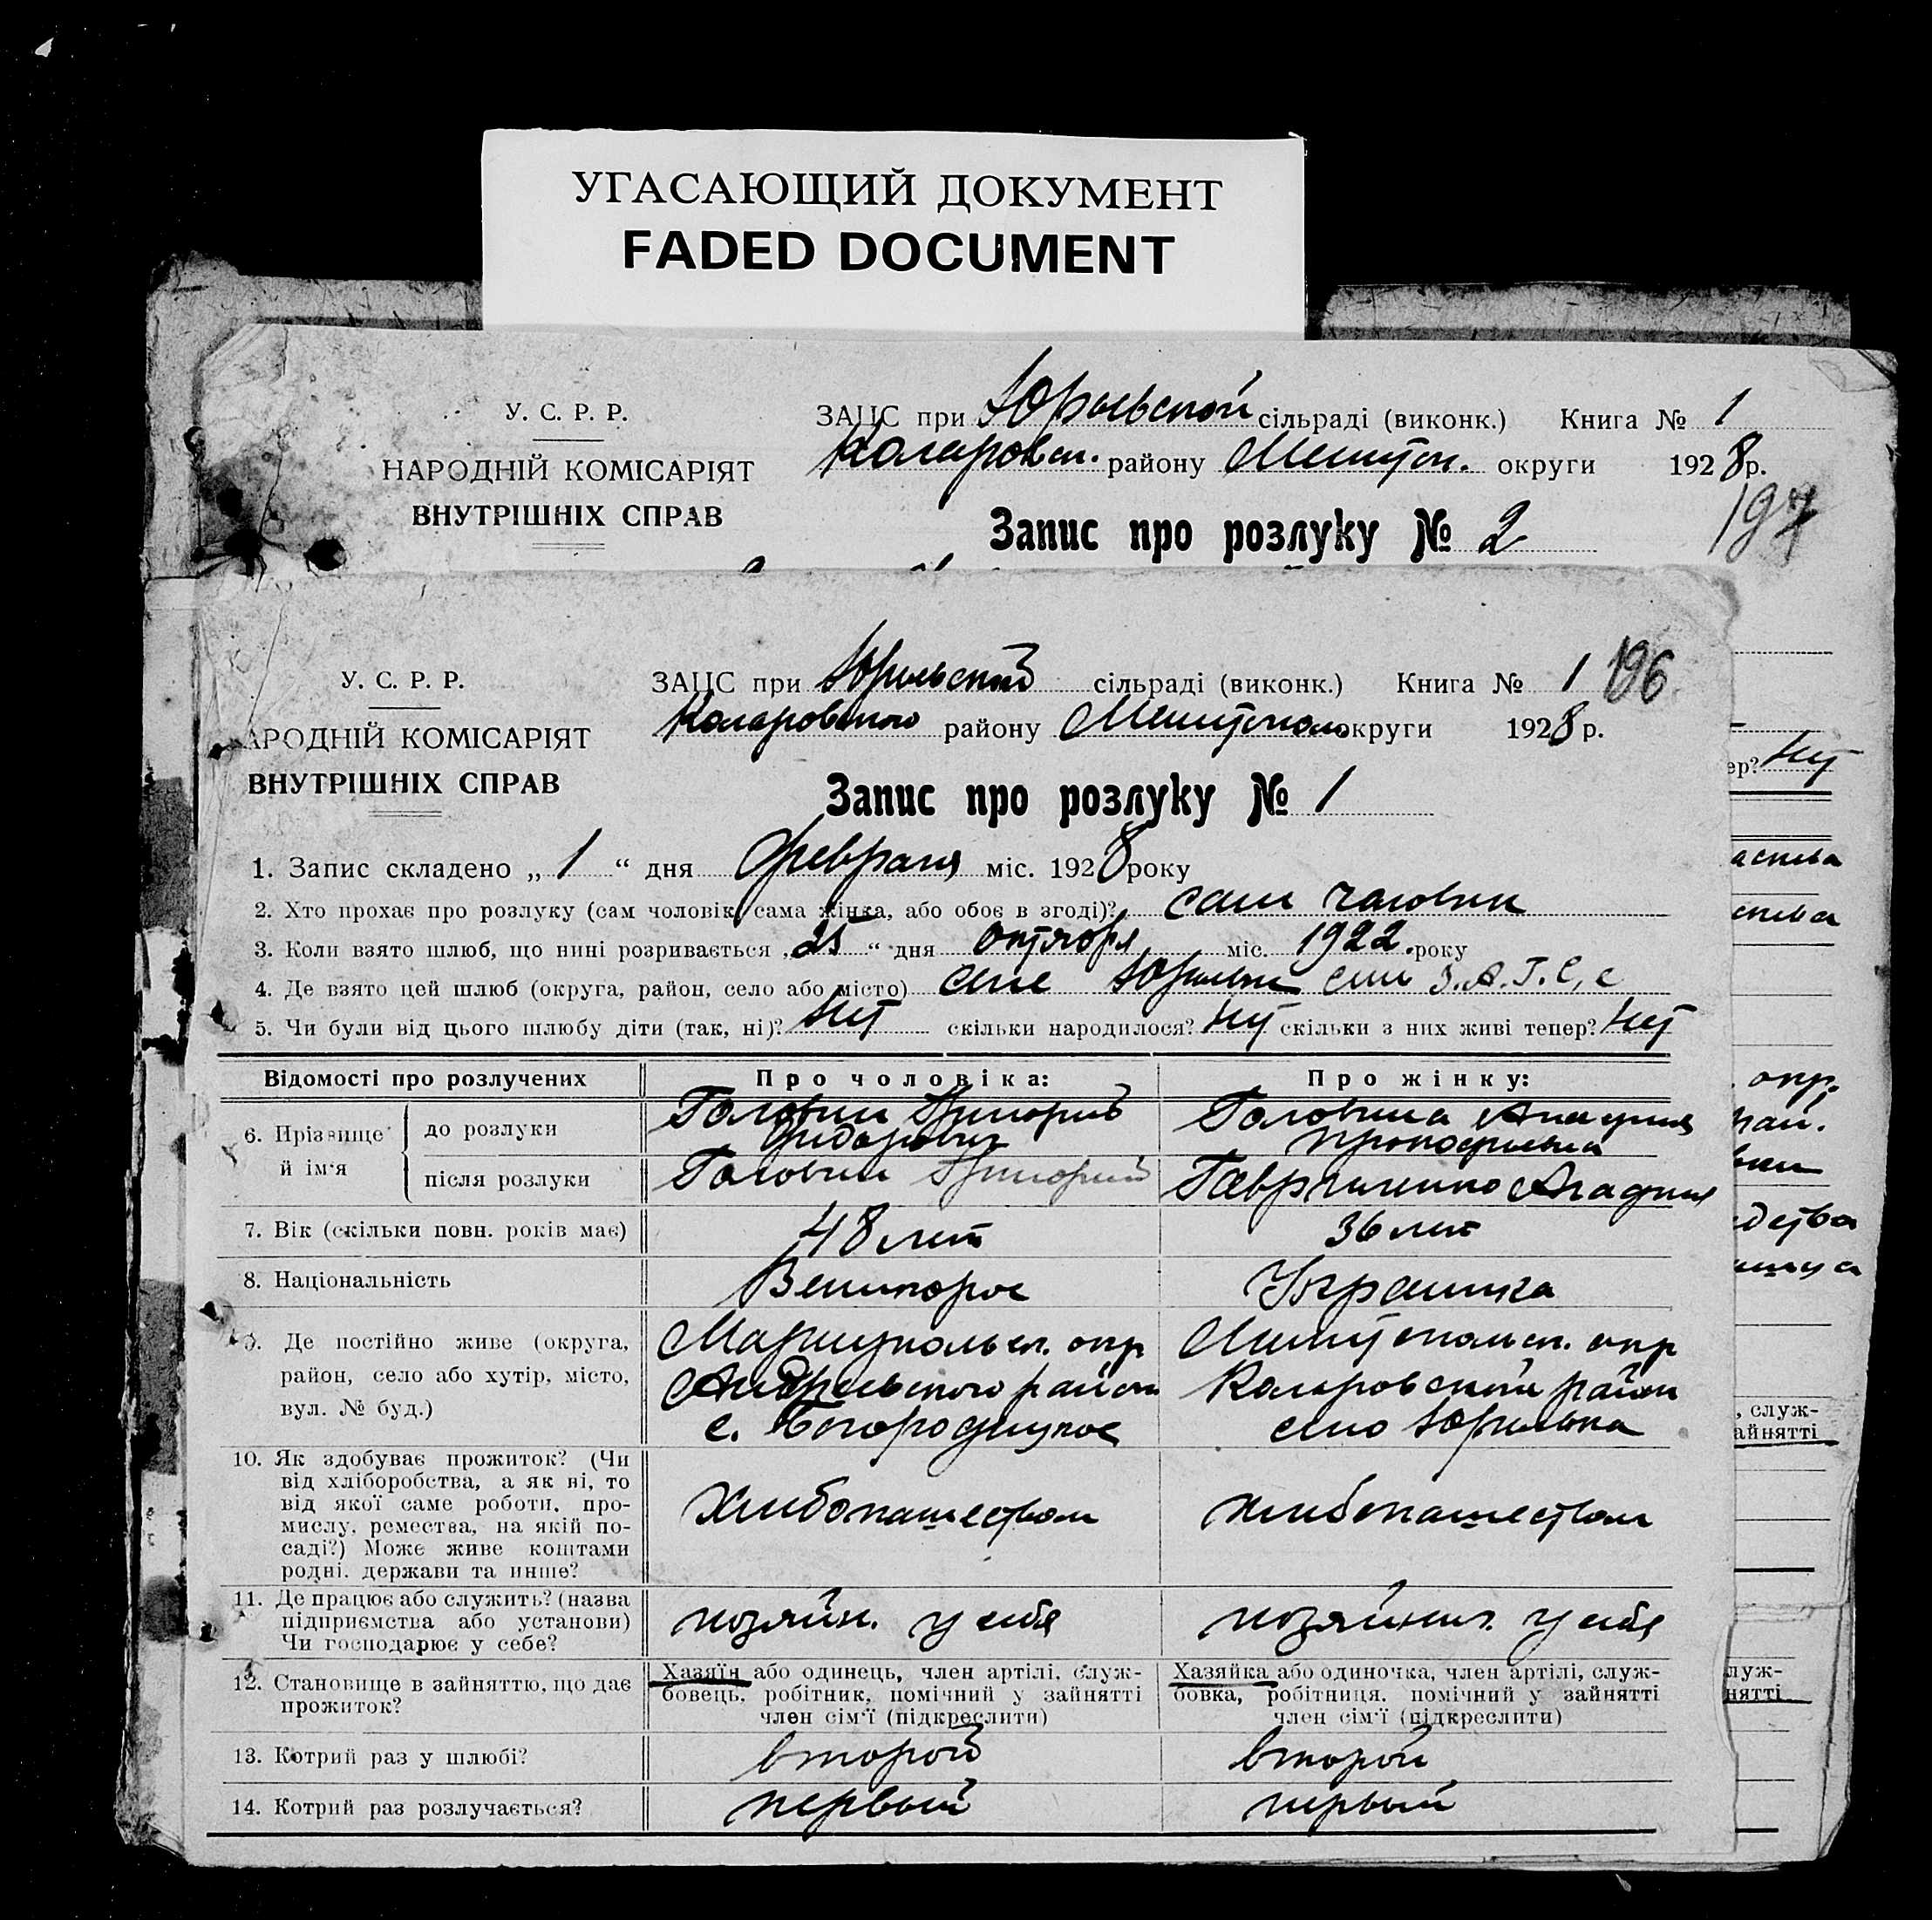 УГАСАЮЩИЙ ДОКУМЕНТ
FADED DOCUMENT
У. С. Р. Р.
НАРОДНІЙ КОМІСАРІЯТ
ВНУТРІШНІХ СПРАВ
ЗАЦС при Юрьевской сільраді (виконк.) Книга № 1
Коларовск. району округи 1928 р.
197
Запис про розлуку № 2
У. С. Р. Р.
АРОДНІЙ КОМІСАРІЯТ
ВНУТРІШНІХ СПРАВ
ЗАЦС при сільраді (виконк.) Книга № 1 196
Коларовского району округи 1928 р.
Запис про розлуку № 1
1. Запис складено „ 1 “ дня февраля міс. 1928 року
2. Хто прохає про розлуку (сам чоловік, сама жінка, або обоє в згоді)? сам чаловик
3. Коли взято шлюб, що нині розривається „ 25 “ дня октября міс. 1922. року
4. Де взято цей шлюб (округа, район, село або місто) селе З.А.Г.С,е
5. Чи були від цього шлюбу діти (так, ні)? нет скільки народилося? нет скільки з них живі тепер? нет
Відомості про розлучених
Про чоловіка:
Про жінку:
6. Прізвище й ім'я
до розлуки
Головин Григорий
Головина
Прокофьевна
після розлуки
Головин Григорий
Гавриленко
7. Вік (скільки повн. років має)
48 лет
36 лет
8. Національність
Великорос
Украинка
9. Де постійно живе (округа,
район, село або хутір, місто,
вул. № буд.)
Мариупольск. окр
Андреевского район
с. Богородицкое
Мелитопольск. окр
Коларовский район
село Юрьевка
10. Як здобуває прожиток? (Чи
від хліборобства, а як ні, то
від якої саме роботи, про-
мислу, ремества, на якій по-
саді?) Може живе коштами
родні, держави та инше?
Хлибопашеством
хлибопашеством
11. Де працює або служить? (назва
підприємства або установи)
Чи господарює у себе?
хозяйн. у себя
у себя
12. Становище в зайняттю, що дає
прожиток?
Хазяїн або одинець, член артілі, служ-
бовець, робітник, помічний у зайнятті
член сім'ї (підкреслити)
Хазяйка або одиночка, член артілі, служ-
бовка, робітниця, помічний у зайнятті
член сім'ї (підкреслити)
13. Котрий раз у шлюбі?
второй
второй
14. Котрий раз розлучається?
первый
первый
ер? нет
окр.
, служ-
айнятті
луж-
нятті